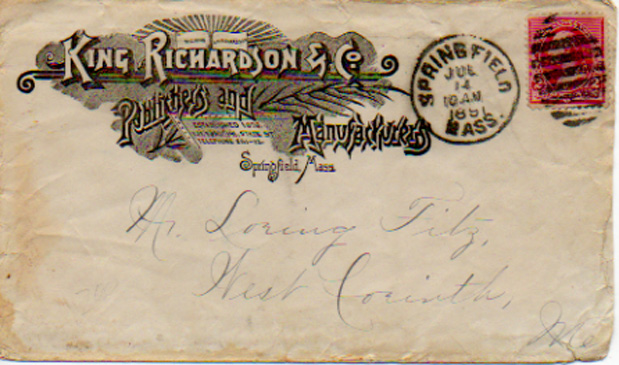 King, Richardson & Co.
Publishers and
Manufacturers
Springfield, Mass.
SPRINGFIELD
JUL
14
10AM
1891
MASS.
Mr. Loring Fitz,
West Corinth,
Me